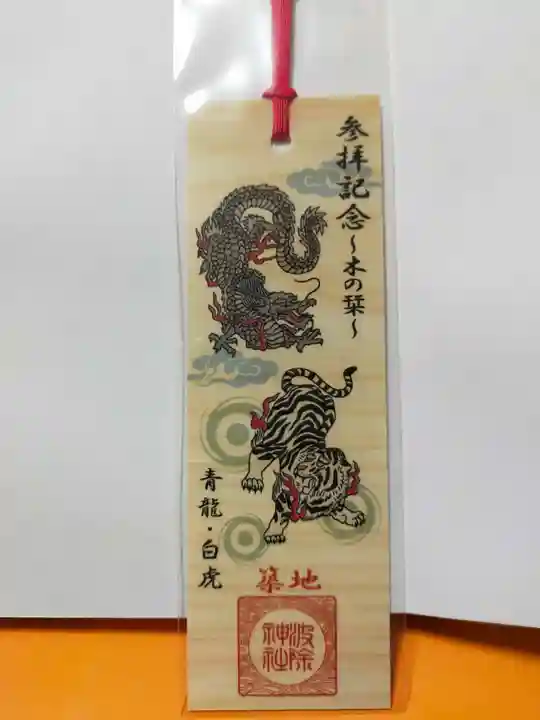 参拝記念～木の栞～
青龍・白虎
築地
波除
神社